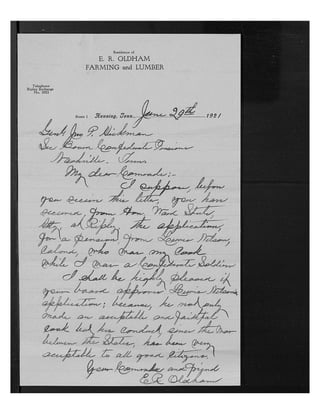 Residence of
E. R. OLDHAM
FARMING and LUMBER
Telephone
Ripley Exchange
Route 1 Henning, Tenn. June 29th 1921
Genl. Jno P. Hickman
Sec Board Confederate Pensions
Nashville. Tenn
My dear Comrade:-
I suppose, before
you receive this letter, you have
received from Hon
Atty at Ripley the application,
for a pension from Lewis Nelson,
Colored, who was my Cook
while I was a Confederate Soldier
I shall be highly pleased if
your board approves Lewis Nelson's
application; because, he not only
made an acceptable and faithful
cook but his conduct, since the War
between the States, has been very
acceptable to all good citizens.
Your Comrade and friend
E. R. Oldham